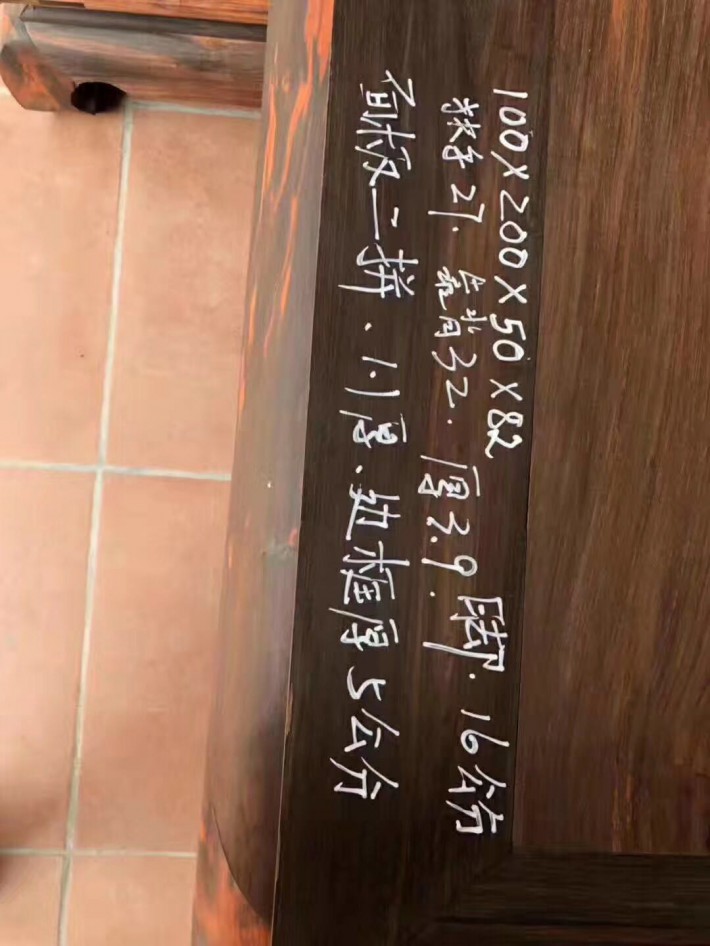 100X200X50X82
扶手27.靠背32.厚3.9.脚.16公分
面板二拼.1.1厚.边框厚5公分